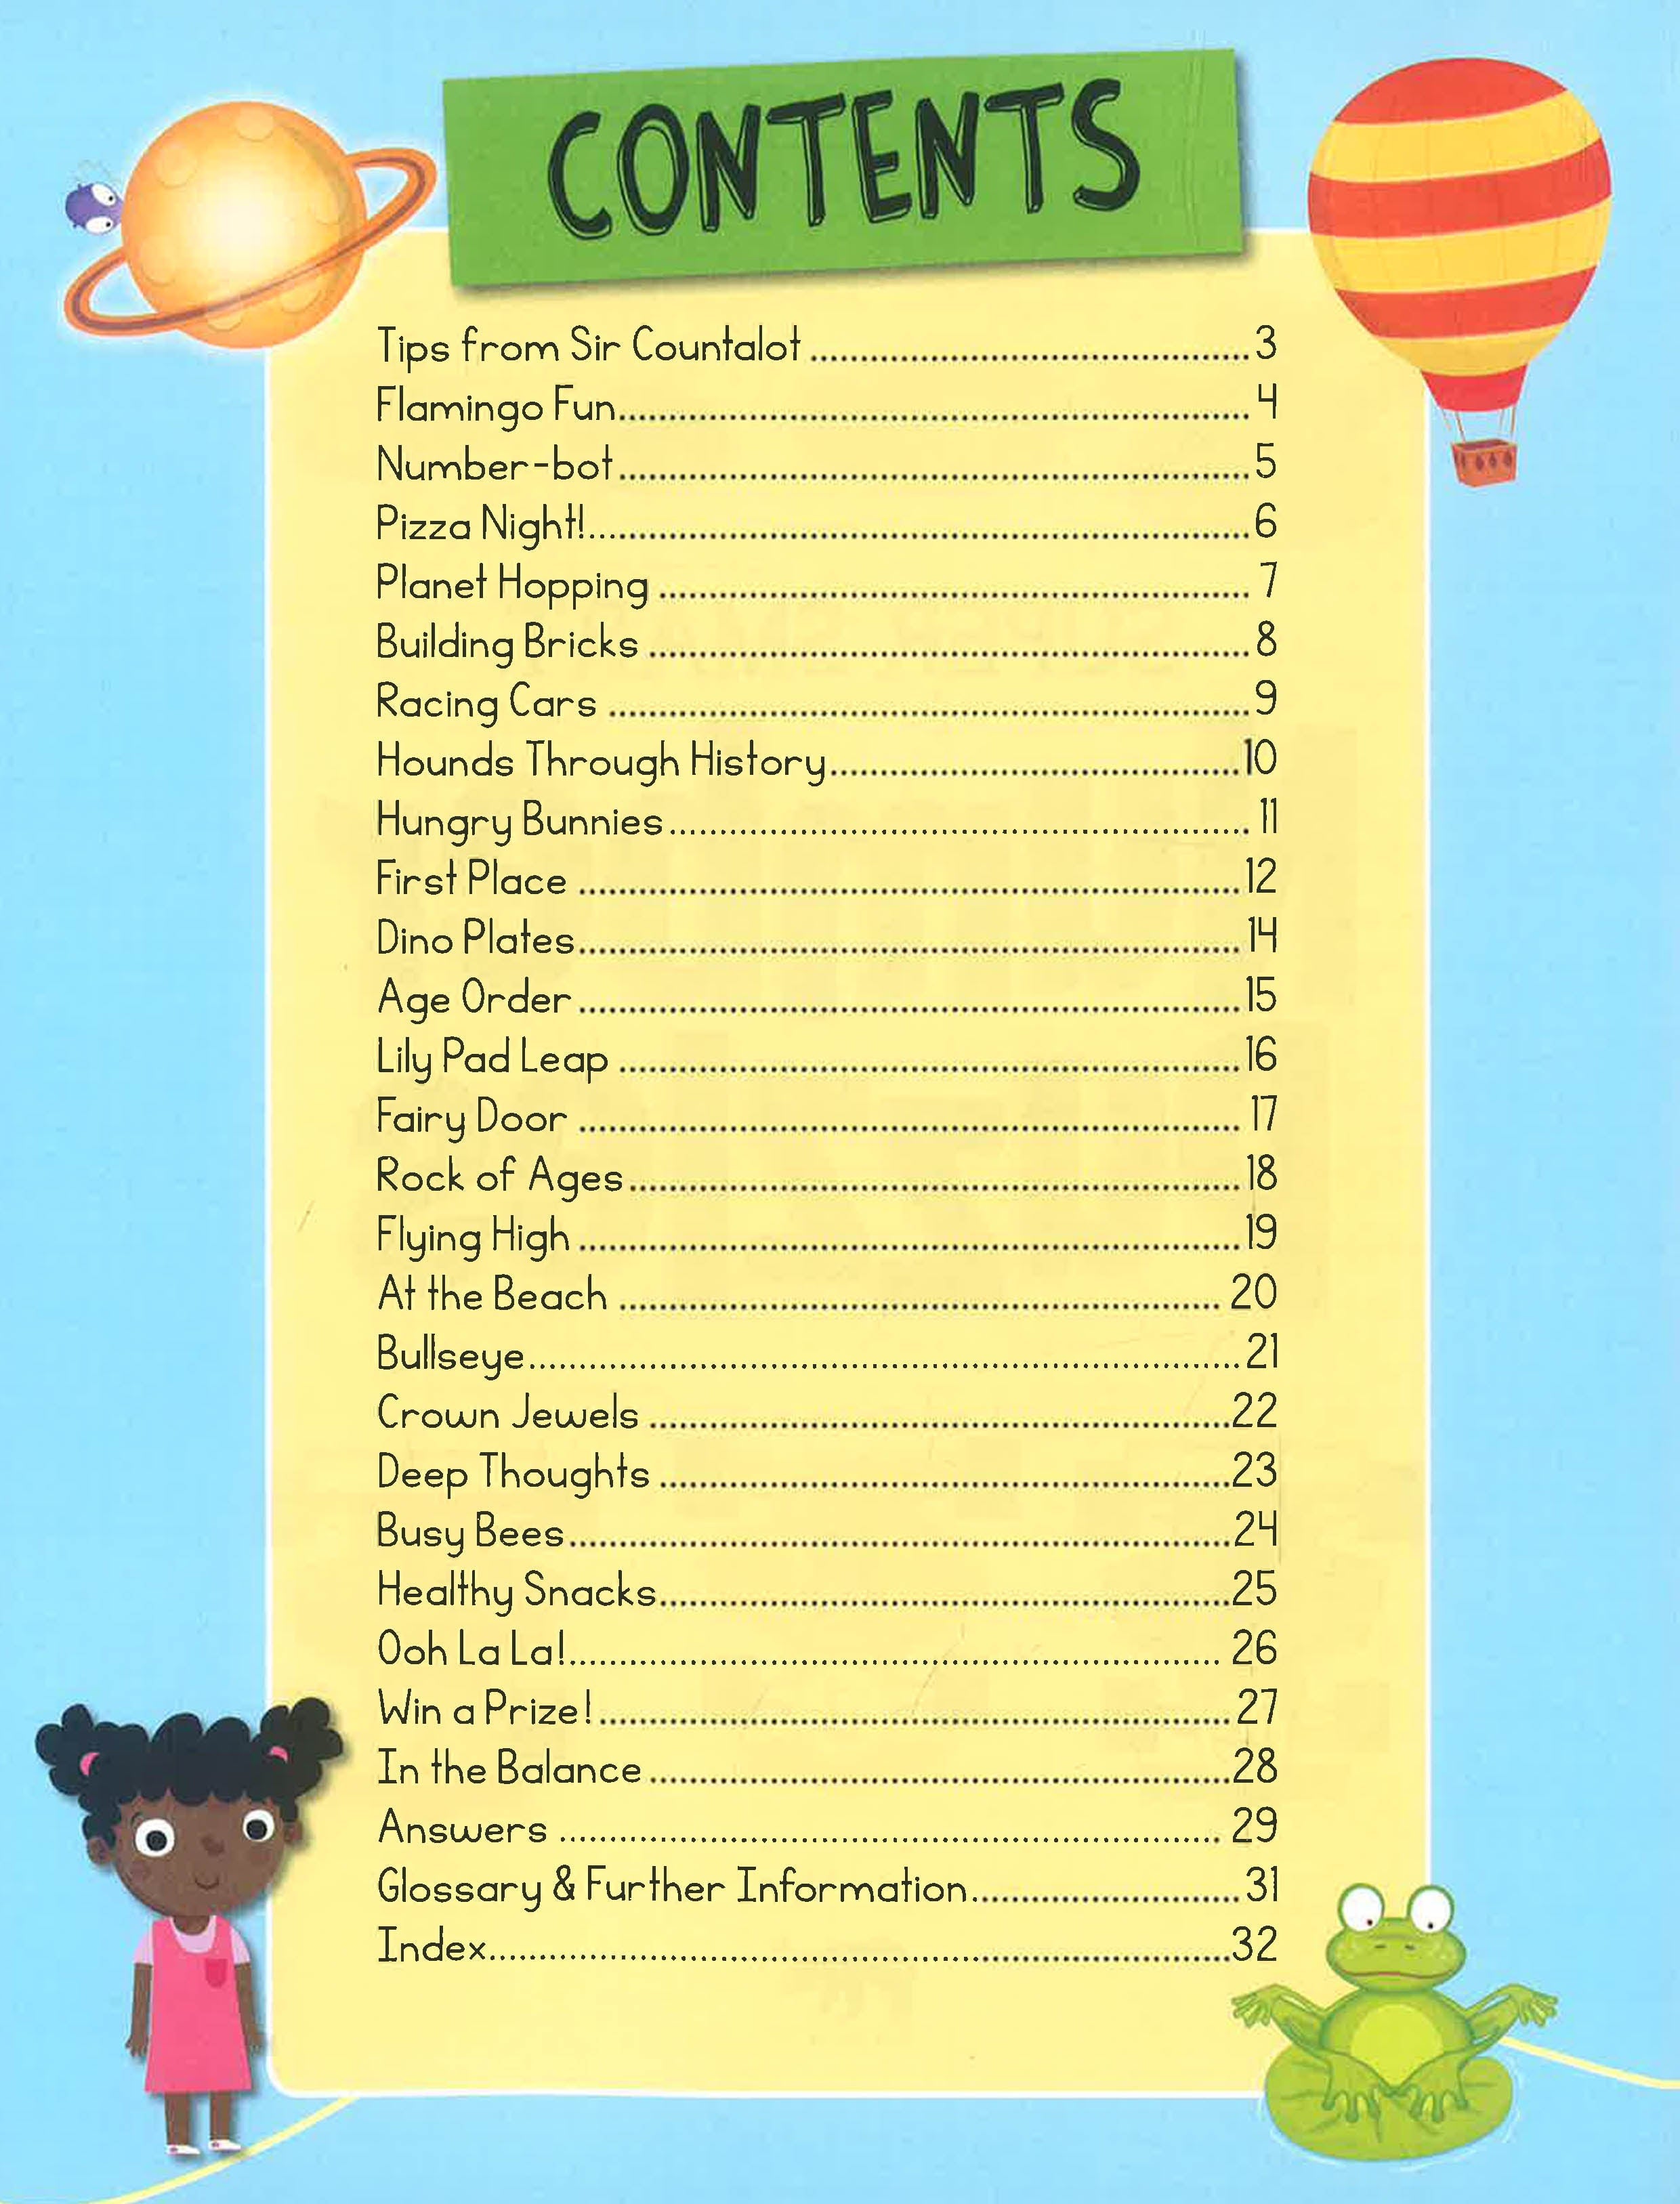 CONTENTS
Tips from Sir Countalot ........................................... 3
Flamingo Fun.............................................................. 4
Number-bot.............................................................. 5
Pizza Night!................................................................. 6
Planet Hopping .......................................................... 7
Building Bricks ........................................................... 8
Racing Cars ............................................................... 9
Hounds Through History........................................10
Hungry Bunnies......................................................... 11
First Place .................................................................12
Dino Plates................................................................. 14
Age Order .................................................................15
Lily Pad Leap .............................................................16
Fairy Door ................................................................. 17
Rock of Ages............................................................ 18
Flying High .................................................................19
At the Beach ........................................................... 20
Bullseye......................................................................21
Crown Jewels .........................................................22
Deep Thoughts ........................................................23
Busy Bees.................................................................24
Healthy Snacks........................................................25
Ooh La La!................................................................ 26
Win a Prize!.............................................................. 27
In the Balance .........................................................28
Answers ................................................................. 29
Glossary & Further Information.......................... 31
Index.........................................................................32